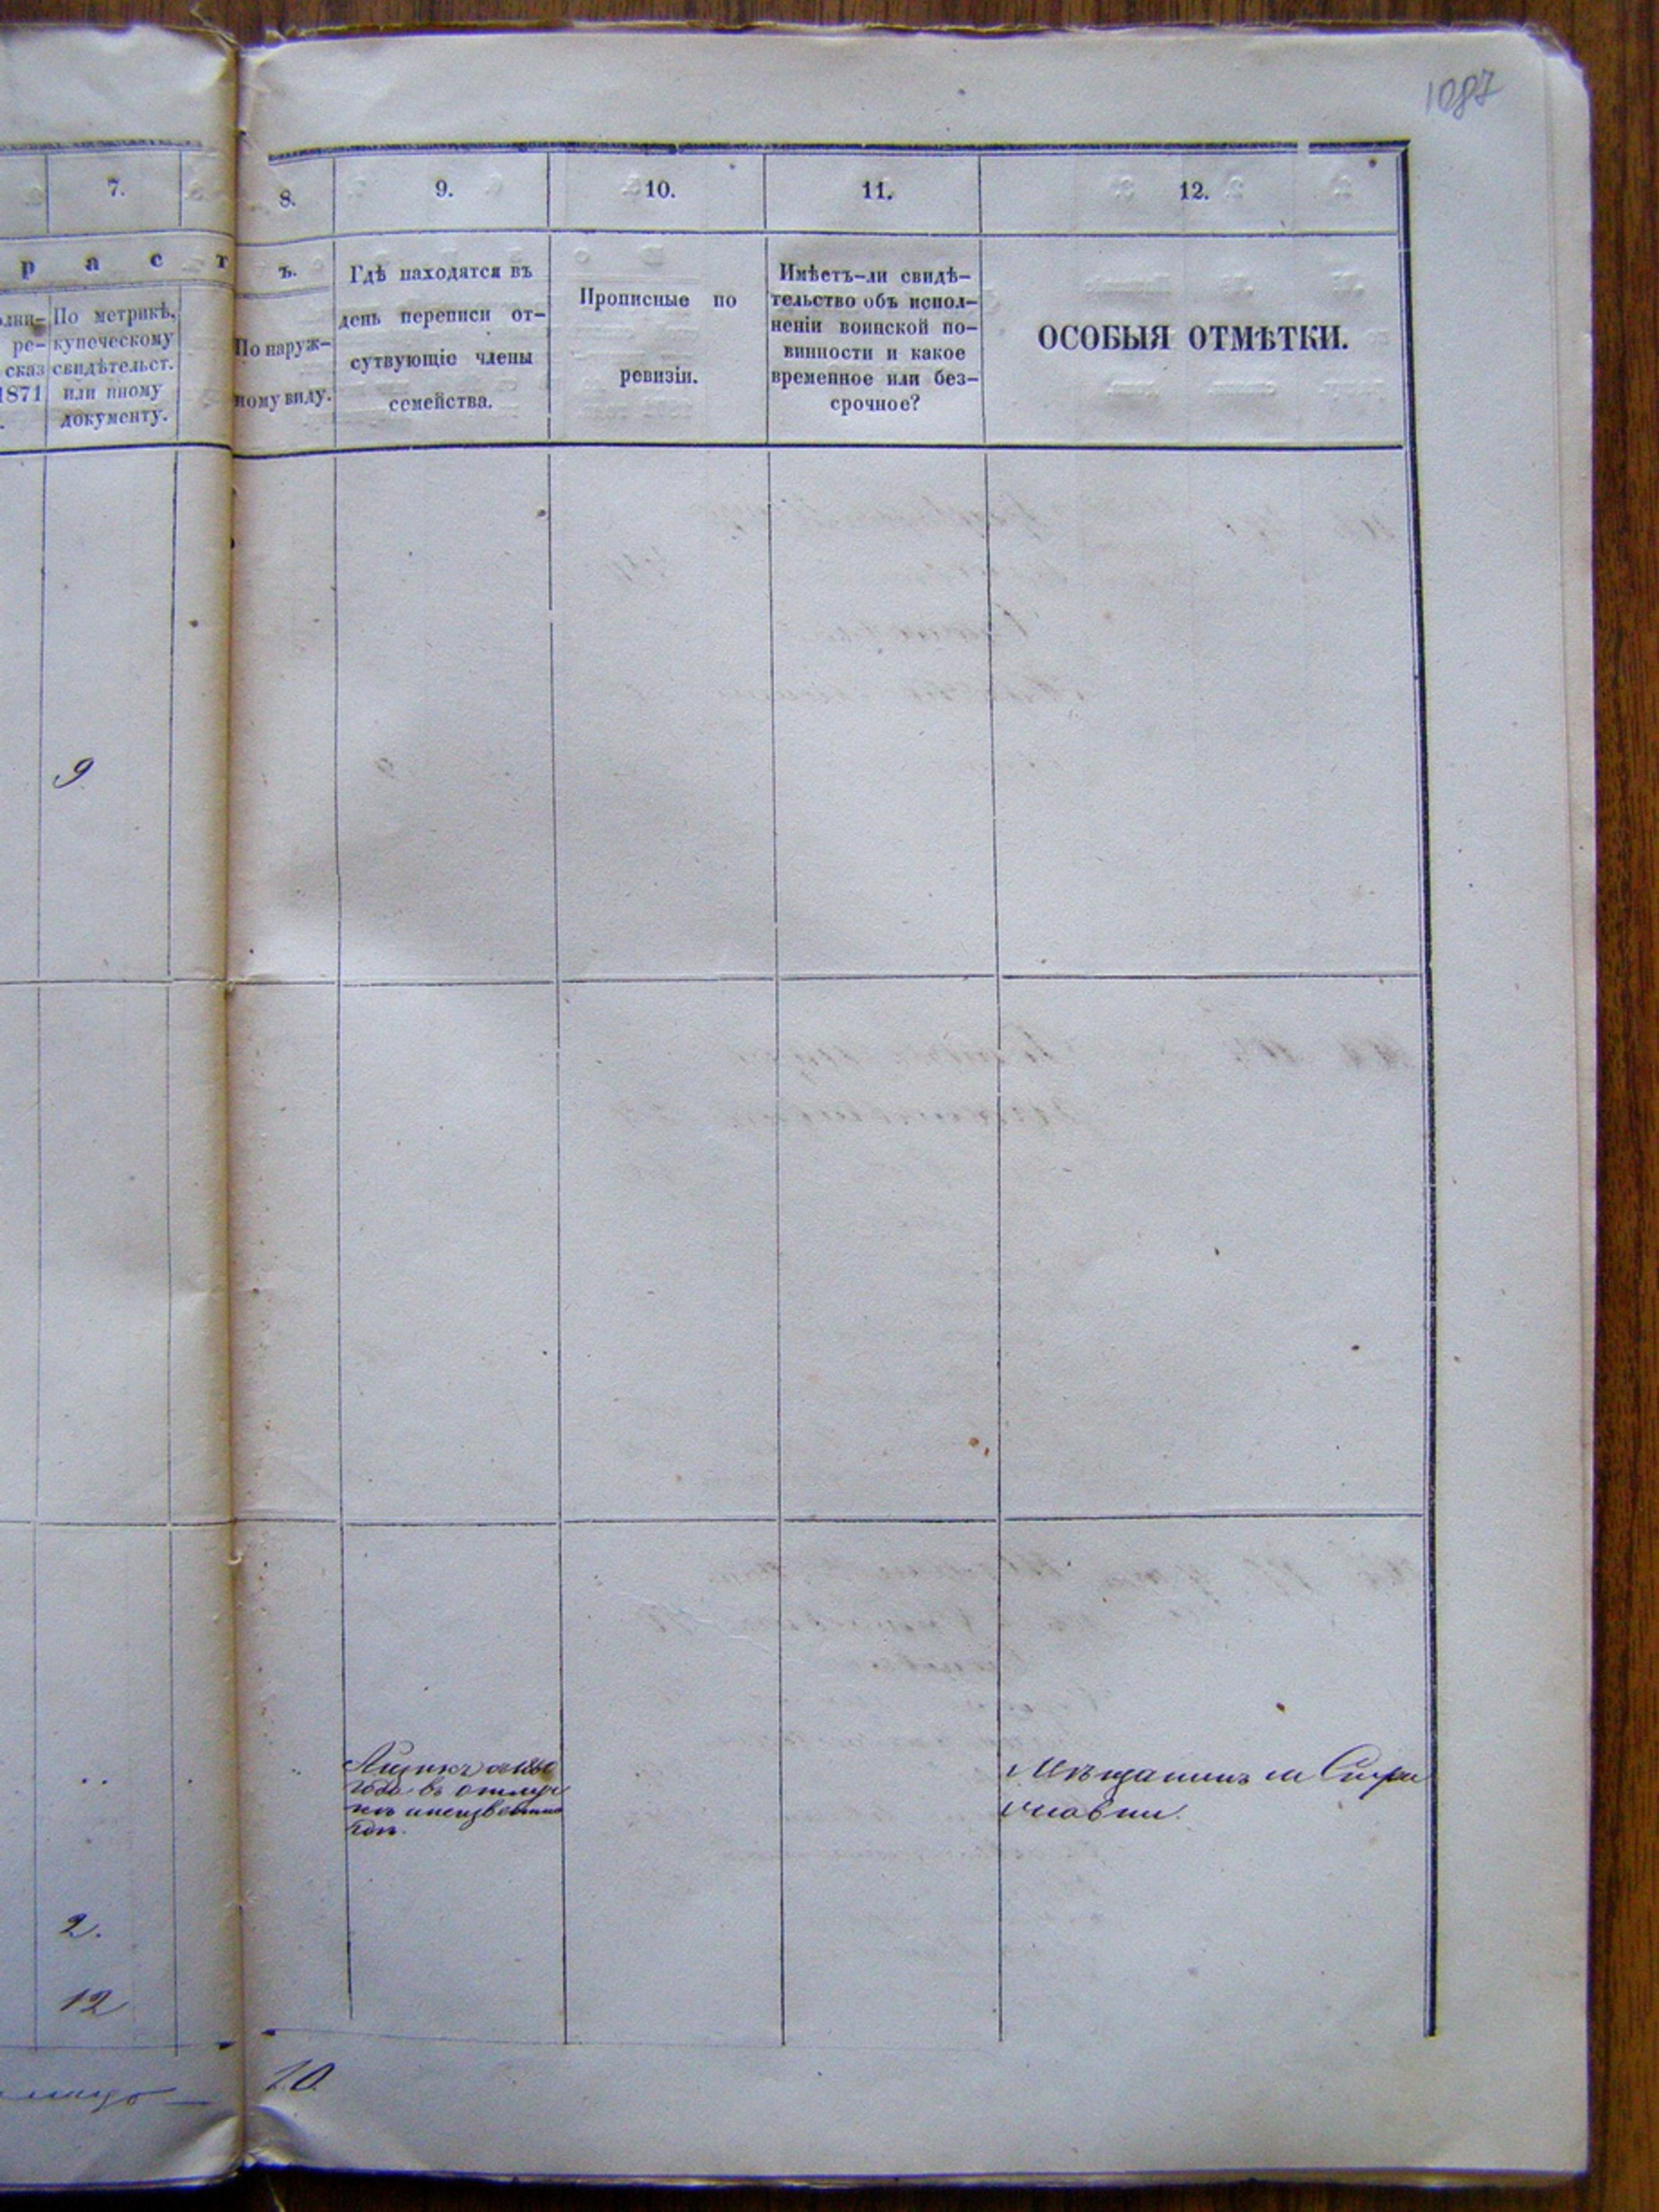 1087
7.
8.
9.
10.
11.
12.
р а с т
ъ.
По метрикѣ,
купеческому
свидѣтельст.
или иному
документу.
ре-
сказ
1871
По наруж-
ному виду.
Гдѣ находятся въ
день переписи от-
сутвующіе члены
семейства.
Прописные по
ревизіи.
Имѣетъ-ли свидѣ-
тельство объ испол-
неніи воинской по-
винности и какое
временное или без-
срочное?
ОСОБЫЯ ОТМѢТКИ.
9
года въ отлуч
кѣ неизвѣстно
гдѣ.
Мѣщанинъ
2.
12
10.